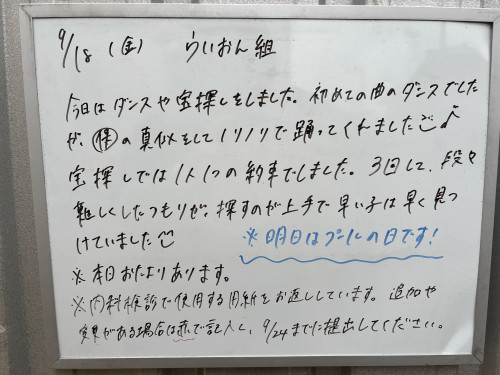 9/18 (金) らいおん組
今日はダンスや宝探しをしました。初めての曲のダンスでした
が、の真似をしてノリノリで踊ってくれました♪
宝探しでは1人1つの約束でしました。3回して、段々
難しくしたつもりが、探すのが上手で早い子は早く見つ
けていました
※明日はプールの日です!
※本日おたよりあります。
※内科検診で使用する用紙をお返ししています。追加や
変更がある場合は赤で記入し、9/24までに提出してください。